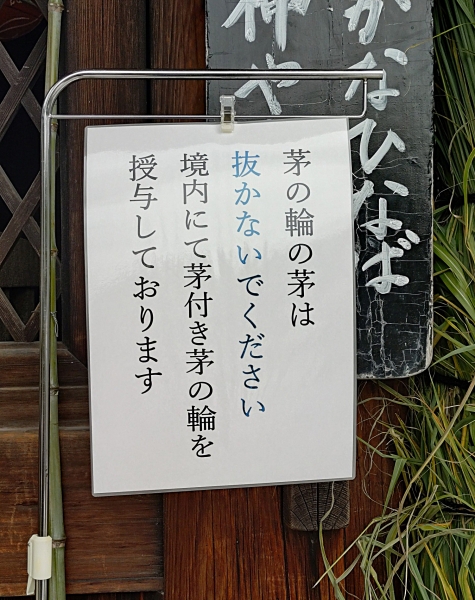 かなひなば
神や
茅の輪の茅は
抜かないでください
境内にて茅付き茅の輪を
授与しております